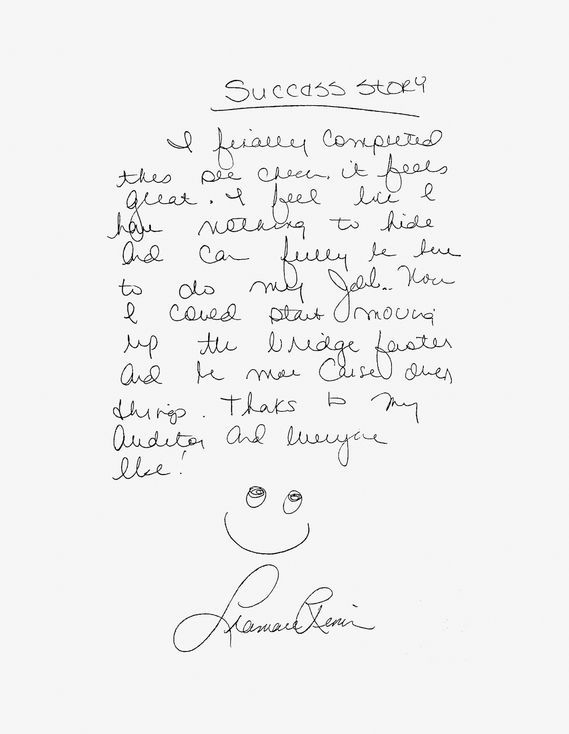 Success Story
I finally completed
this sec check. it feels
great. I feel like I
have nothing to hide
And can fully be here
to do my Job.. Now
I could start moving
up the bridge faster
And be more Cause over
things. Thaks to my
Auditor and Everyone
Else!